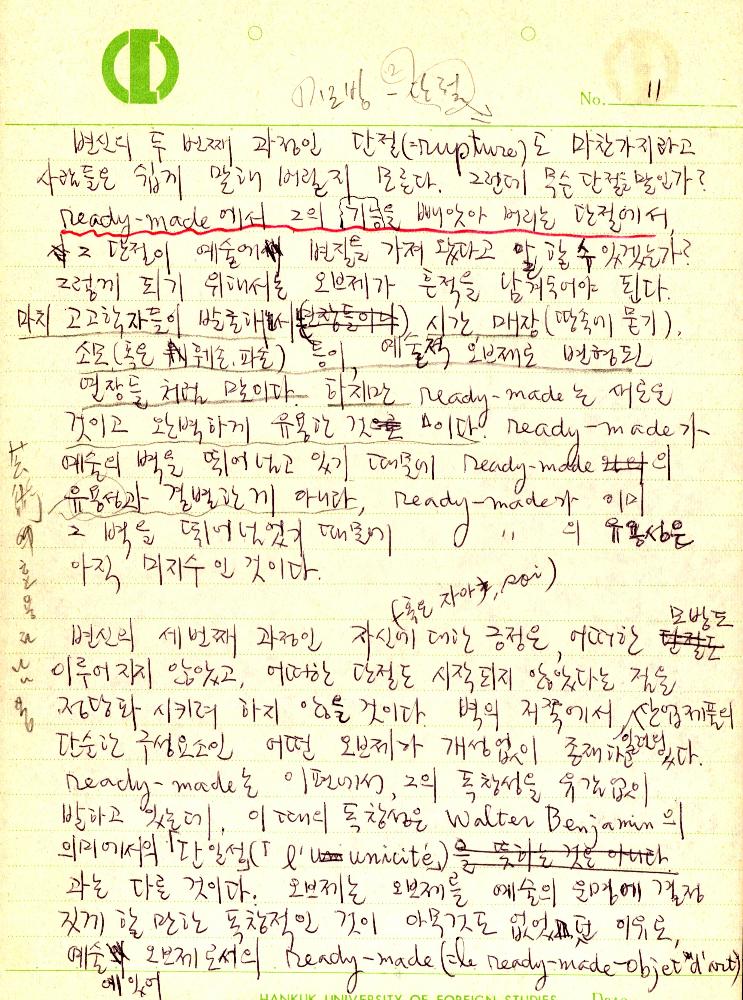 미모방 = 단절
No. 11
변신의 두 번째 과정인 단절(=rupture)도 마찬가지라고
사람들은 쉽게 말해 버릴지 모른다. 그런데 무슨 단절을 말인가?
ready-made 에서 그의 기능을 빼앗아 버리는 단절에서,
그 단절이 예술에 변질을 가져 왔다고 말할 수 있겠는가?
그렇게 되기 위해서는 오브제가 흔적을 남겨두어야 된다.
마치 고고학자들이 발굴해서 (연장들이다) 시간 매장(땅속에 묻기),
소모(혹은 훼손, 파손) 등이, 예술적 오브제로 변형된
연장들 처럼 말이다. 하지만 ready-made는 새로운
것이고 완벽하게 유용한 것이다. ready-made가
예술의 벽을 뛰어넘고 있기 때문에 ready-made의
유용성과 결별한 게 아니다, ready-made가 이미
그 벽을 뛰어넘었기 때문에 〃 의 유용성은
아직 미지수인 것이다.
(혹은 자아, soi)
변신의 세번째 과정인 자신에 대한 긍정은, 어떠한 단절도 모방도
이루어지지 않았고, 어떠한 단절도 시작되지 않았다는 점을
정당화 시키려 하지 않을 것이다. 벽의 저쪽에서 산업제품의
단순한 구성요소인 어떤 오브제가 개성없이 존재하고 있다.
ready-made는 이편에서, 그의 독창성을 유감없이
발하고 있는데, 이 때의 독창성은 Walter Benjamin의
의미에서의 「단일성」(「l'unicité」)을 뜻하는 것은 아니다.
과는 다른 것이다. 오브제는 오브제를 예술의 운명에 결정
짓게 할 만한 독창적인 것이 아무것도 없었던 이유로,
예술에 있어 오브제로서의 ready-made (=le ready-made-objet "d'art)
HANKUK UNIVERSITY OF FOREIGN STUDIES Date